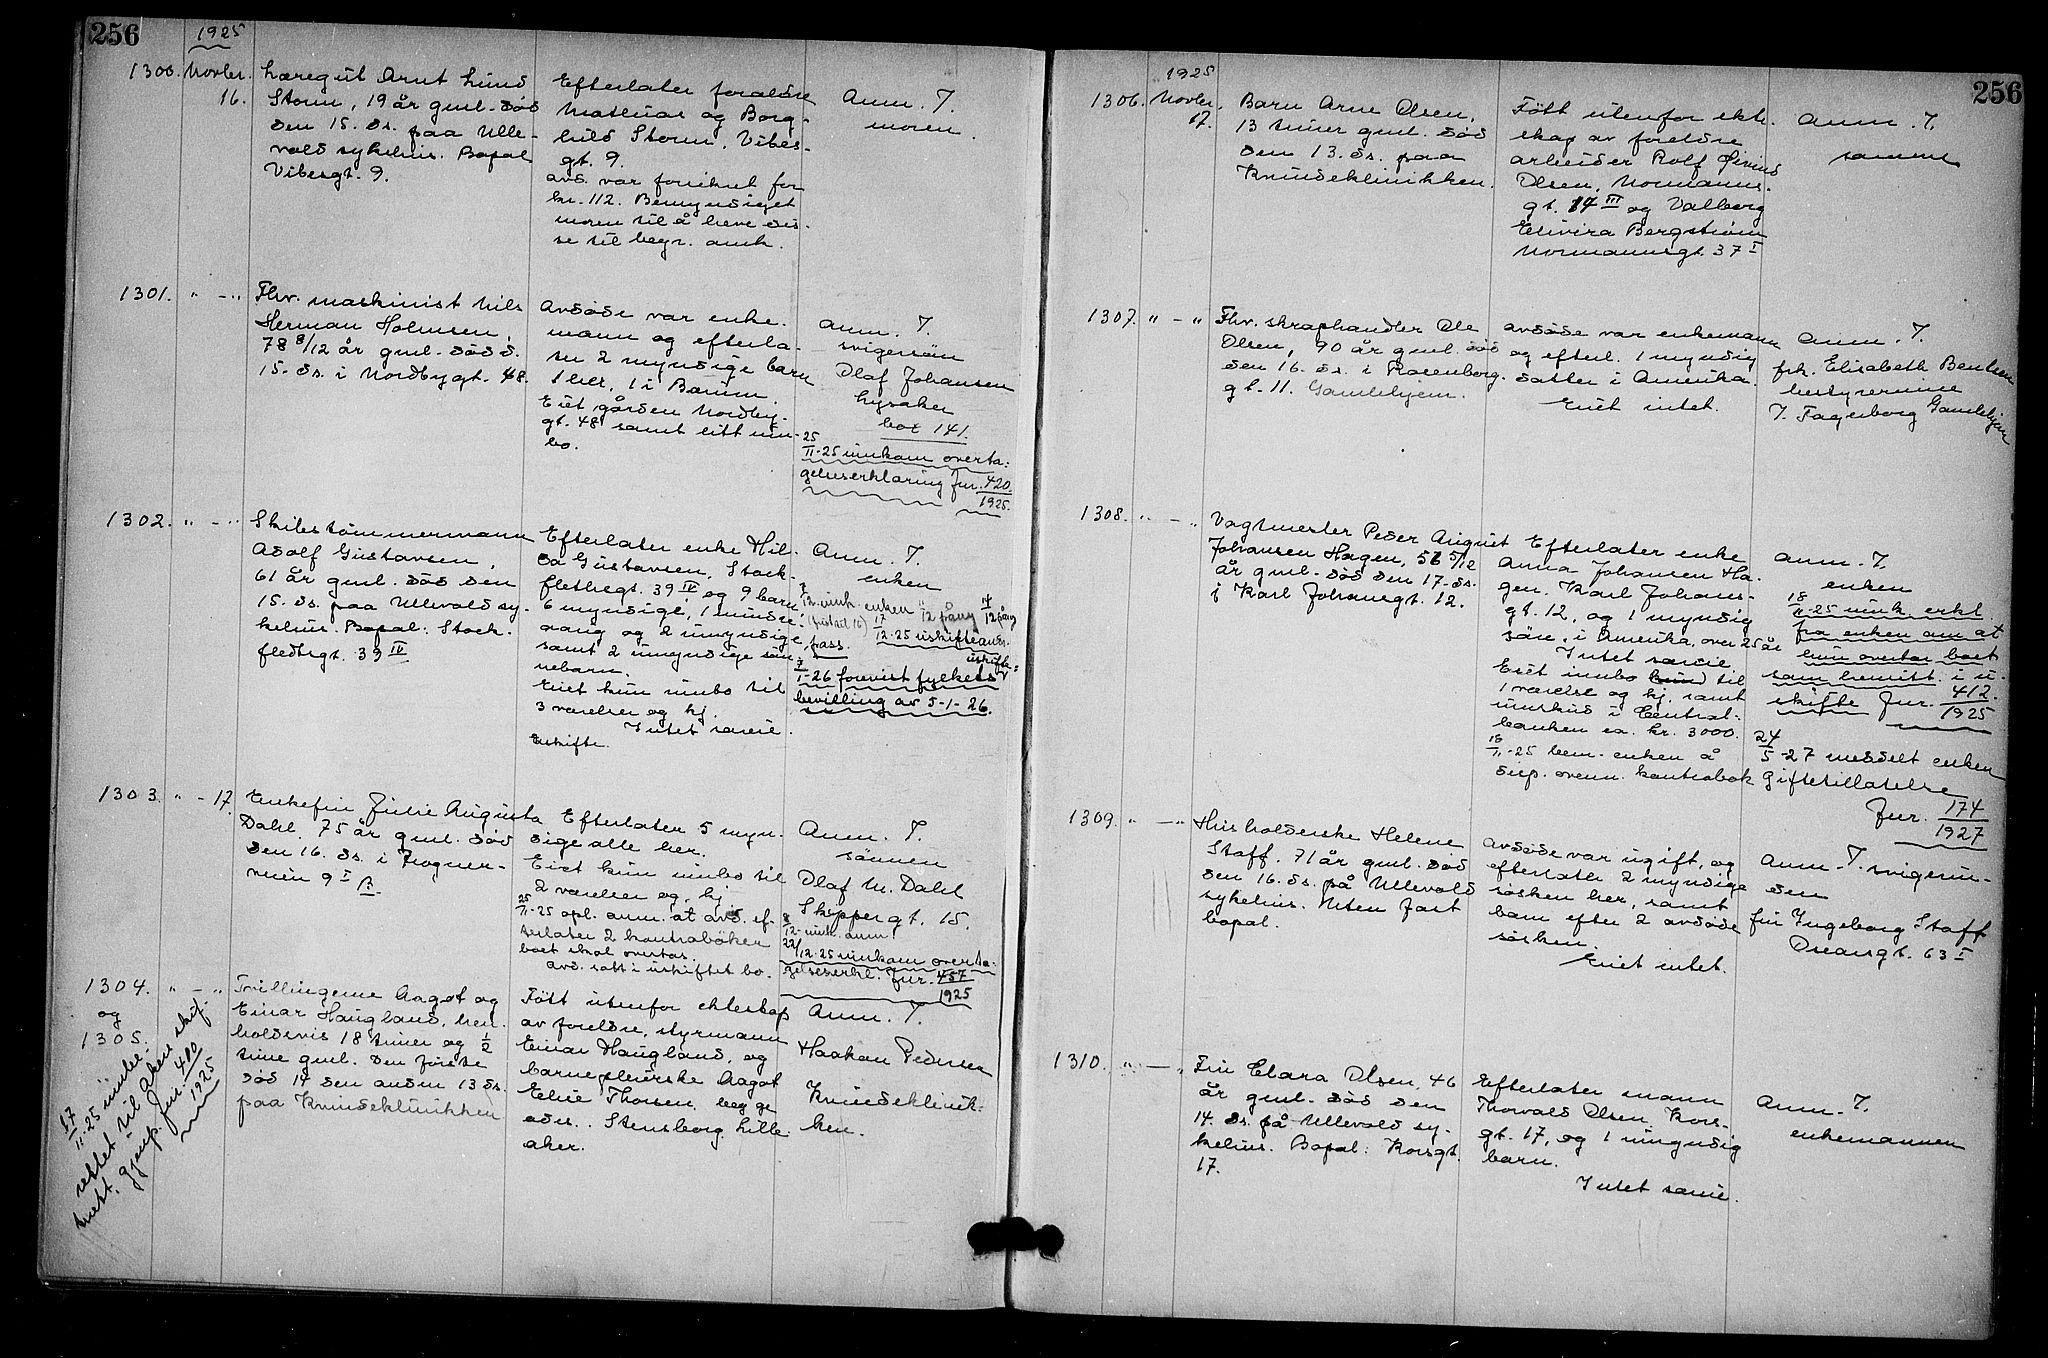 256
1925
1300. Novbr. 16.
Læregut Arnt Lund
Storm, 19 år gml. død
den 15. ds. paa Ulle-
vold sykehus. Bopæl
Vibesgt. 9.
Efterlater foraldre
Matheas og Borg-
hild Storm, Vibes-
gt. 9.
avd. var forsikret for
kr. 112. Bemyndiget
moren til å heve dis-
se til begr. omk.
Anm. T.
moren
1301. " - "
Fhv. maskinist Nils
Herman Holmsen,
78 8/12 år gml. død d.
15. ds. i Nordbygt. 48.
Avdøde var enke-
mann og efterla-
ter 2 myndige barn
1 her, 1 i Bærum.
Eiet gården Nordby-
gt. 48 samt litt inn-
bo.
Anm. T.
svigersön
Olaf Johansen
Lysaker
box 141.
25/11-25 innkom overta-
gelseserklæring Jnr. 420/1925.
1302. " - "
Skibstömmermann
Adolf Gustavsen,
61 år gml. död den
15. ds. paa Ullevold sy-
kehus. Bopæl: Stock-
fledtsgt. 39 IV
Efterlater enke Hil-
da Gustavsen, Stock-
fledtsgt. 39 IV og 9 barn
6 myndige, 1 mindre-
aarig og 2 umyndige
samt 2 umyndige søn-
nebarn.
Eiet kun innbo til
3 værelser og kj.
Intet særeie.
Uskifte.
Anm. T.
enken
12. innk. enken 11/12 14/12
(frist til 16) 17/12-25 uskifteandr.
pass.
uskifte-
7/1-26 forevist fylkets
bevilling av 5-1-26.
1303. " - 17.
Enkefru Julie Augusta
Dahl, 75 år gml. död
den 16. ds. i Frogner-
veien 9 I B.
Efterlater 5 myn-
dige alle her.
Eiet kun innbo til
2 værelser og kj.
25/11-25 opl. anm. at avd. ef-
terlater 2 kontrabøker
boet skal overtas.
avd. satt i uskiftet bo.
Anm. T.
sönnen
Olaf M. Dahl
Skippergt. 15.
8/12- innk. anm.
22/12-25 innkom overta-
gelseserkl. Jnr. 457/1925
1304. " - "
og
1305.
Tvillingerne Aagot og
Einar Haugland, hen-
holdsvis 18 timer og 1/2
time gml. Den første
død 14 den anden 13 ds.
paa Kvindeklinikken
Født utenfor ekteskap
av foreldre, styrmann
Einar Haugland, og
barnepleierske Aagot
Eline Thorsen, begge
adr. Stensberg, Lille-
aker.
Anm. T.
Haakon Pedersen
Kvindeklinik-
ken.
17/11-25 innber.
rettet til Aker skif-
terett. gjenp. Jnr. 400/1925
256
1925
1306. Novbr. 17.
Barn Arne Olsen,
13 timer gml. död
den 13. ds. paa
Kvindeklinikken.
Född utenfor ekte-
skap av foreldre
arbeider Rolf Øivind
Olsen, Normanns-
gt. 14 III og Valborg
Elivira Bergström
Normannsgt. 37 I
Anm. T.
samme
1307. " - "
Fhv. skraphandler Ole
Olsen, 90 år gml. död
den 16. ds. i Rosenborg-
gt. 11. Gamlehjem.
avdöde var enkemann
og efterl. 1 myndig
datter i Amerika.
Eiet intet.
Anm. T.
frk. Elisabeth Bentsen
bestyrerinne
f. Fagerborg Gamlehjem
1308. " - "
Vagtmester Peder August
Johansen Hagen, 56 5/12
år gml. död den 17. ds.
i Karl Johansgt. 12.
Efterlater enke
Anna Johansen Ha-
gen. Karl Johans-
gt. 12, og 1 myndig
søn, i Amerika, over 25 år
Intet særeie.
Eiet innbo til
1 værelse og kj. samt
innskud i Central-
banken ca. kr. 3000.
18/11-25 bem. enken å
disp. ovenn. kontrabok
Anm. T.
enken
18/11-25 innk. erkl.
fra enken om at
hun overtar boet
som hensitt. i u-
skifte Jnr. 412/1925
24/5-27 meddelt enken
giftetillatelse
Jnr. 174/1927
1309. " - "
Husholderske Helene
Staff. 71 år gml. død
den 16. ds. på Ullevold
sykehus. Uten fast
bopæl.
Avdøde var ugift, og
efterlater 2 myndige
søsken her, samt
barn efter 2 avdøde
søsken.
Eiet intet.
Anm. T. svigerin-
den
fru Ingeborg Staff
Oscarsgt. 63 I
1310. " - "
Fru Clara Olsen, 46
år gml. død den
14. ds. på Ullevold sy-
kehus. Bopæl: Korsgt.
17.
Efterlater mann
Thorvald Olsen, Kors-
gt. 17, og 1 umyndig
barn.
Intet særeie.
Anm. T.
enkemannen